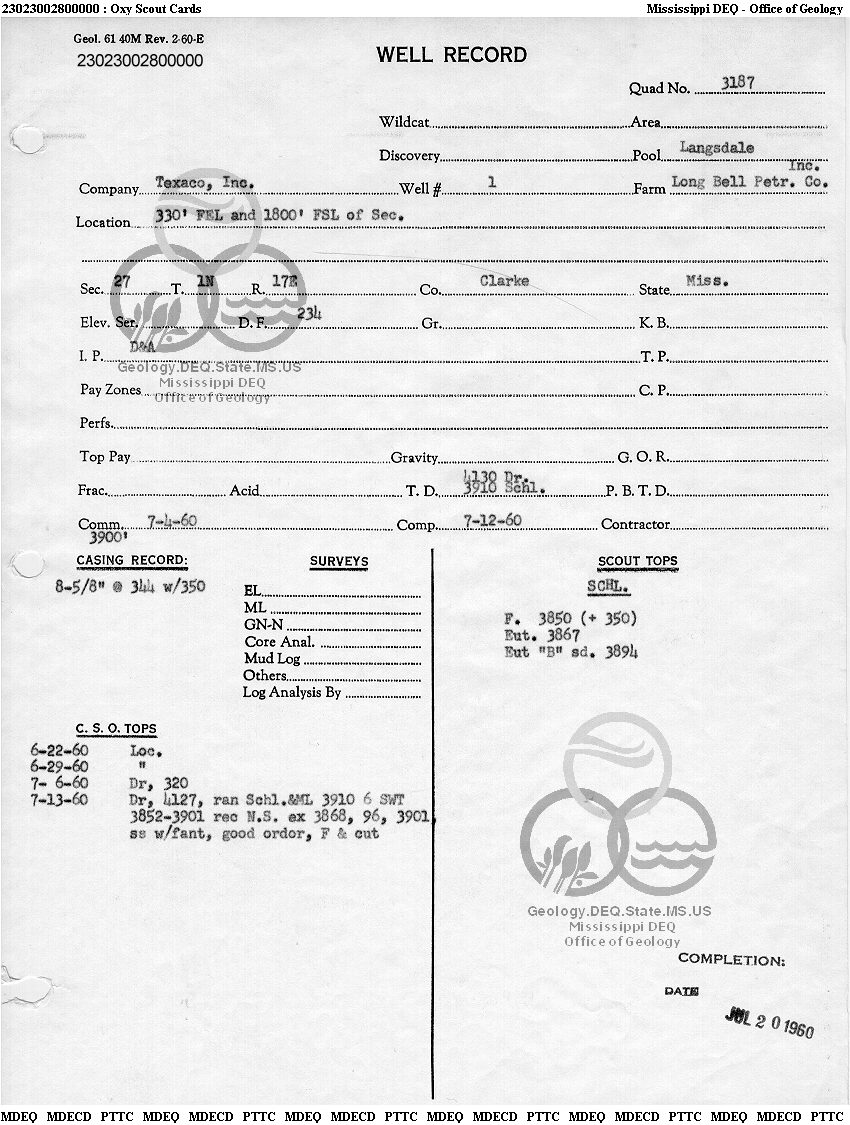 23023002800000 : Oxy Scout Cards Mississippi DEQ - Office of Geology
Geol. 61 40M Rev. 2-60-E
23023002800000
WELL RECORD
Quad No. 3187
Wildcat Area
Discovery Pool Langsdale
Inc.
Company Texaco, Inc. Well # 1 Farm Long Bell Petr. Co.
Location 330' FEL and 1800' FSL of Sec.
Sec. 27 T. 1N R. 17E Co. Clarke State Miss.
Elev. Ser. D. F. 234 Gr. K. B.
I. P. D&A T. P.
Geology.DEQ.State.MS.US
Mississippi DEQ
Pay Zones C. P.
Office of Geology
Perfs.
Top Pay Gravity G. O. R.
4130 Dr.
Frac. Acid T. D. 3910 Schl. P. B. T. D.
Comm. 7-4-60 Comp. 7-12-60 Contractor
3900'
CASING RECORD: SURVEYS SCOUT TOPS
8-5/8" @ 344 w/350
EL
ML
GN-N
Core Anal.
Mud Log
Others
Log Analysis By
SCHL.
F. 3850 (+ 350)
Eut. 3867
Eut "B" sd. 3894
C. S. O. TOPS
6-22-60 Loc.
6-29-60 "
7- 6-60 Dr, 320
7-13-60 Dr, 4127, ran Schl.&ML 3910 6 SWT
3852-3901 rec N.S. ex 3868, 96, 3901,
ss w/fant, good ordor, F & cut
Geology.DEQ.State.MS.US
Mississippi DEQ
Office of Geology
COMPLETION:
DATE
JUL 20 1960
MDEQ MDECD PTTC MDEQ MDECD PTTC MDEQ MDECD PTTC MDEQ MDECD PTTC MDEQ MDECD PTTC MDEQ MDECD PTTC